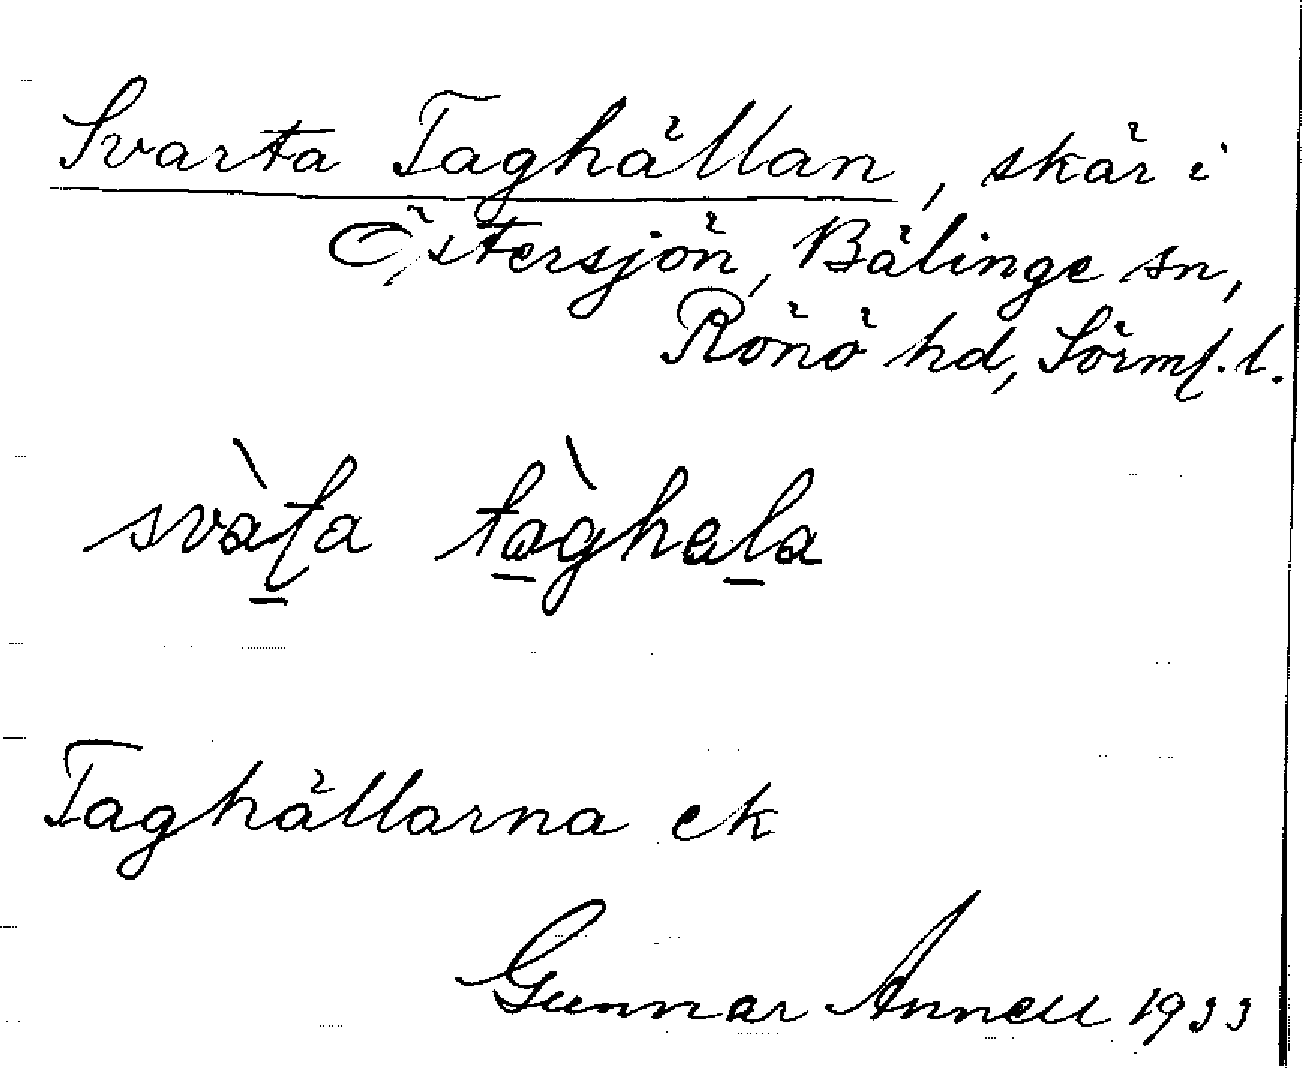 Svarta Taghällan, skär i
Östersjön, Bälinge sn,
Rönö hd, Sörml. l.
svàʈa tàghaḷa
Taghällarna ek
Gunnar Annell 1933